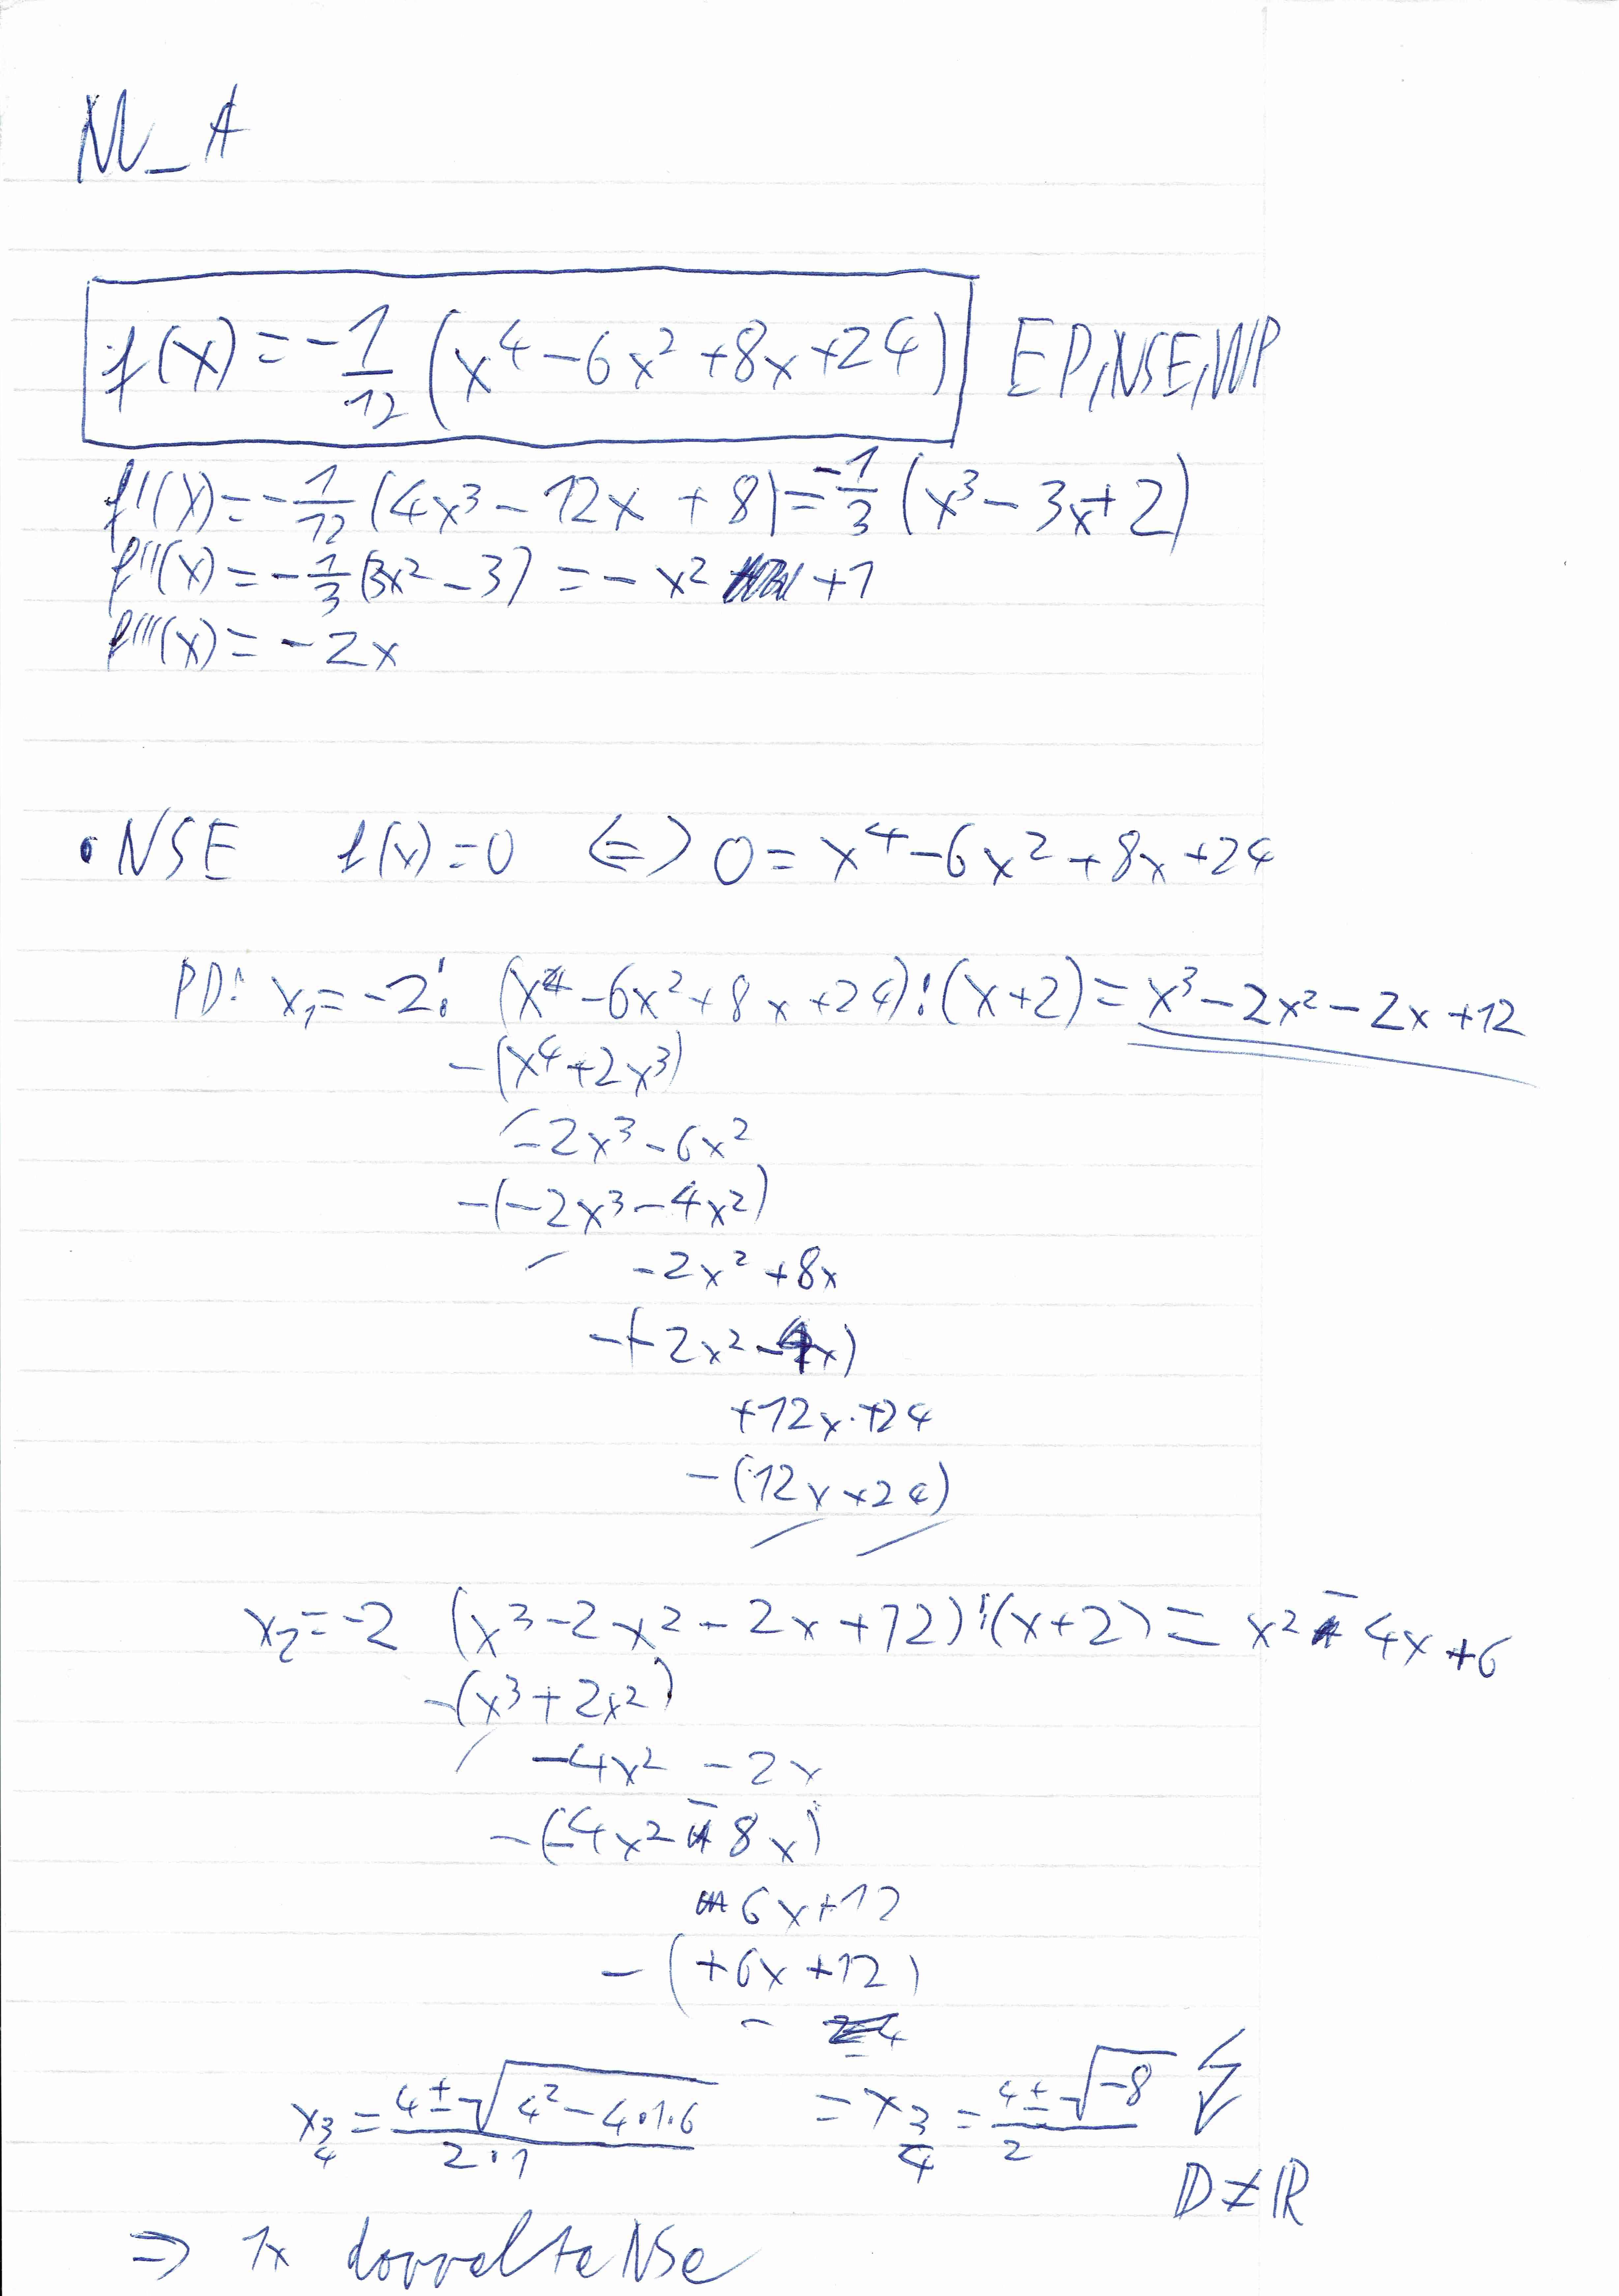 NU_A
f(x) = -1/12 (x⁴ - 6x² + 8x + 24) EP, NSE, WP
f'(x) = -1/12 (4x³ - 12x + 8) = -1/3 (x³ - 3x + 2)
f''(x) = -1/3 (3x² - 3) = -x² +1
f'''(x) = -2x
• NSE f(x) = 0 <=> 0 = x⁴ - 6x² + 8x + 24
PD: x₁ = -2: (x⁴ - 6x² + 8x + 24) : (x+2) = x³ - 2x² - 2x + 12
-(x⁴ + 2x³)
-2x³ - 6x²
-(-2x³ - 4x²)
-2x² + 8x
-(-2x² - 4x)
+12x + 24
-(12x + 24)
x₂ = -2 (x³ - 2x² - 2x + 12) : (x+2) = x² - 4x + 6
-(x³ + 2x²)
-4x² - 2x
-(-4x² - 8x)
6x + 12
-(+6x + 12)
x₃/₄ = (4 ± √(4² - 4·1·6))/(2·1) = x₃/₄ = (4 ± √-8)/2 ↯
𝔻 ≠ ℝ
=> 1x doppelte NSe